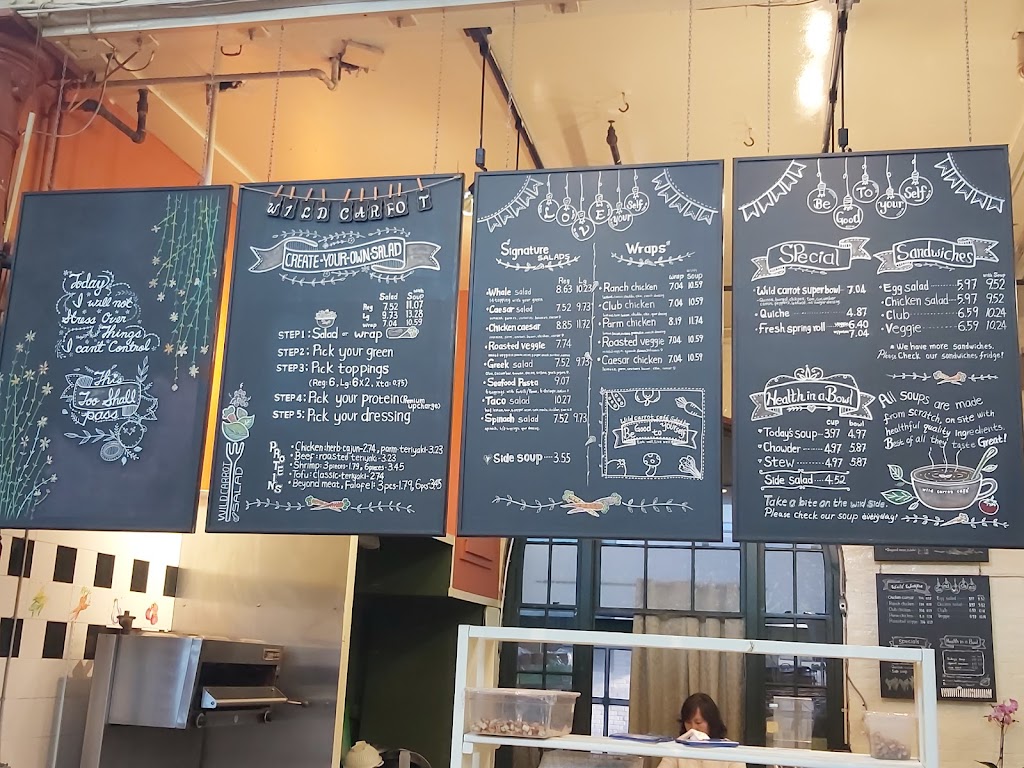 Today
I will not
Stress Over
Things
I cant Control
This
Too Shall
pass
WILD CARROT
CREATE-YOUR-OWN-SALAD
Salad with Soup
Reg 7.52 11.07
Lg 9.73 13.28
wrap 7.04 10.59
STEP 1: Salad or wrap
STEP 2: Pick your green
STEP 3: Pick toppings
(Reg 6, Lg: 6x2, Xto: 0.75)
STEP 4: Pick your protein (Premium upcharge)
STEP 5: Pick your dressing
PROTEINS
• Chicken: herb cajun-2.74, parm teriyaki-3.23
• Beef: roasted teriyaki-3.23
• Shrimp: 3pieces-1.79, 6pieces-3.45
• Tofu: Classic-teriyaki-2.74
• Beyond meat, Falafel: 3pcs-1.79, 6pcs-3.45
WILD CARROT
SALAD
LOVE your Self
Signature
SALADS
Reg Lg
• Whole salad 8.63 10.23
• Caesar salad 7.52 9.73
• Chicken caesar 8.85 11.72
• Roasted veggie 7.74
• Greek salad 7.52 9.73
• Seafood Pasta 9.07
• Taco salad 10.27
• Spinach salad 7.52 9.73
Side soup 3.55
Wraps
wrap Soup
• Ranch chicken 7.04 10.59
• Club chicken 7.04 10.59
• Parm chicken 8.19 11.74
• Roasted veggie 7.04 10.59
• Caesar chicken 7.04 10.59
wild carrot cafe
Be Good to yourself
Be Good TO your Self
Special
• Wild carrot superbowl 7.04
• Quiche 4.87
• Fresh spring roll 6.40
7.04
Sandwiches
with Soup
• Egg salad 5.97 9.52
• Chicken salad 5.97 9.52
• Club 6.59 10.24
• Veggie 6.59 10.24
* We have more sandwiches.
Please Check our sandwiches fridge!
Health in a Bowl
cup bowl
Today's soup 3.97 4.97
• Chowder 4.97 5.87
• Stew 4.97 5.87
Side Salad 4.52
Take a bite on the wild side.
Please check our soup everyday!
All soups are made
from scratch, on site with
healthful quality ingredients.
Best of all they taste Great!
wild carrot cafe